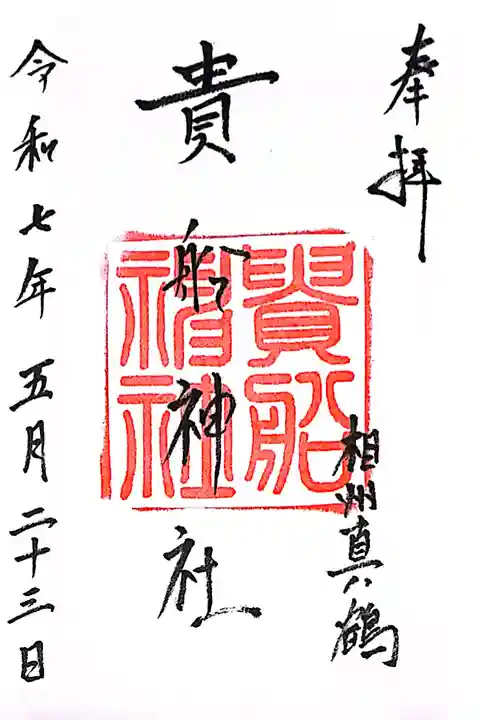 奉拝
相州真鶴
貴船神社
貴船
神社
令和七年五月二十三日